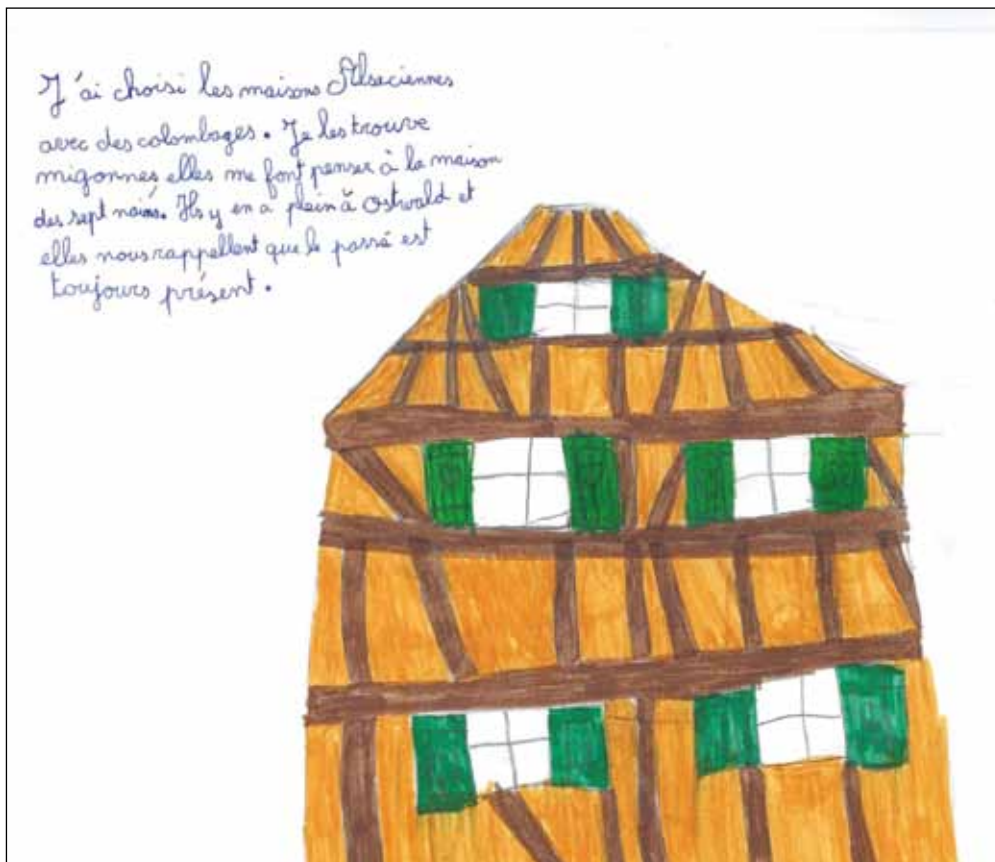 J'ai choisi les maisons Alsaciennes
avec des colombages. Je les trouve
migonnes, elles me font penser à la maison
des sept nains. Ils y en a plein à Ostwald et
elles nous rappellent que le passé est
toujours présent.